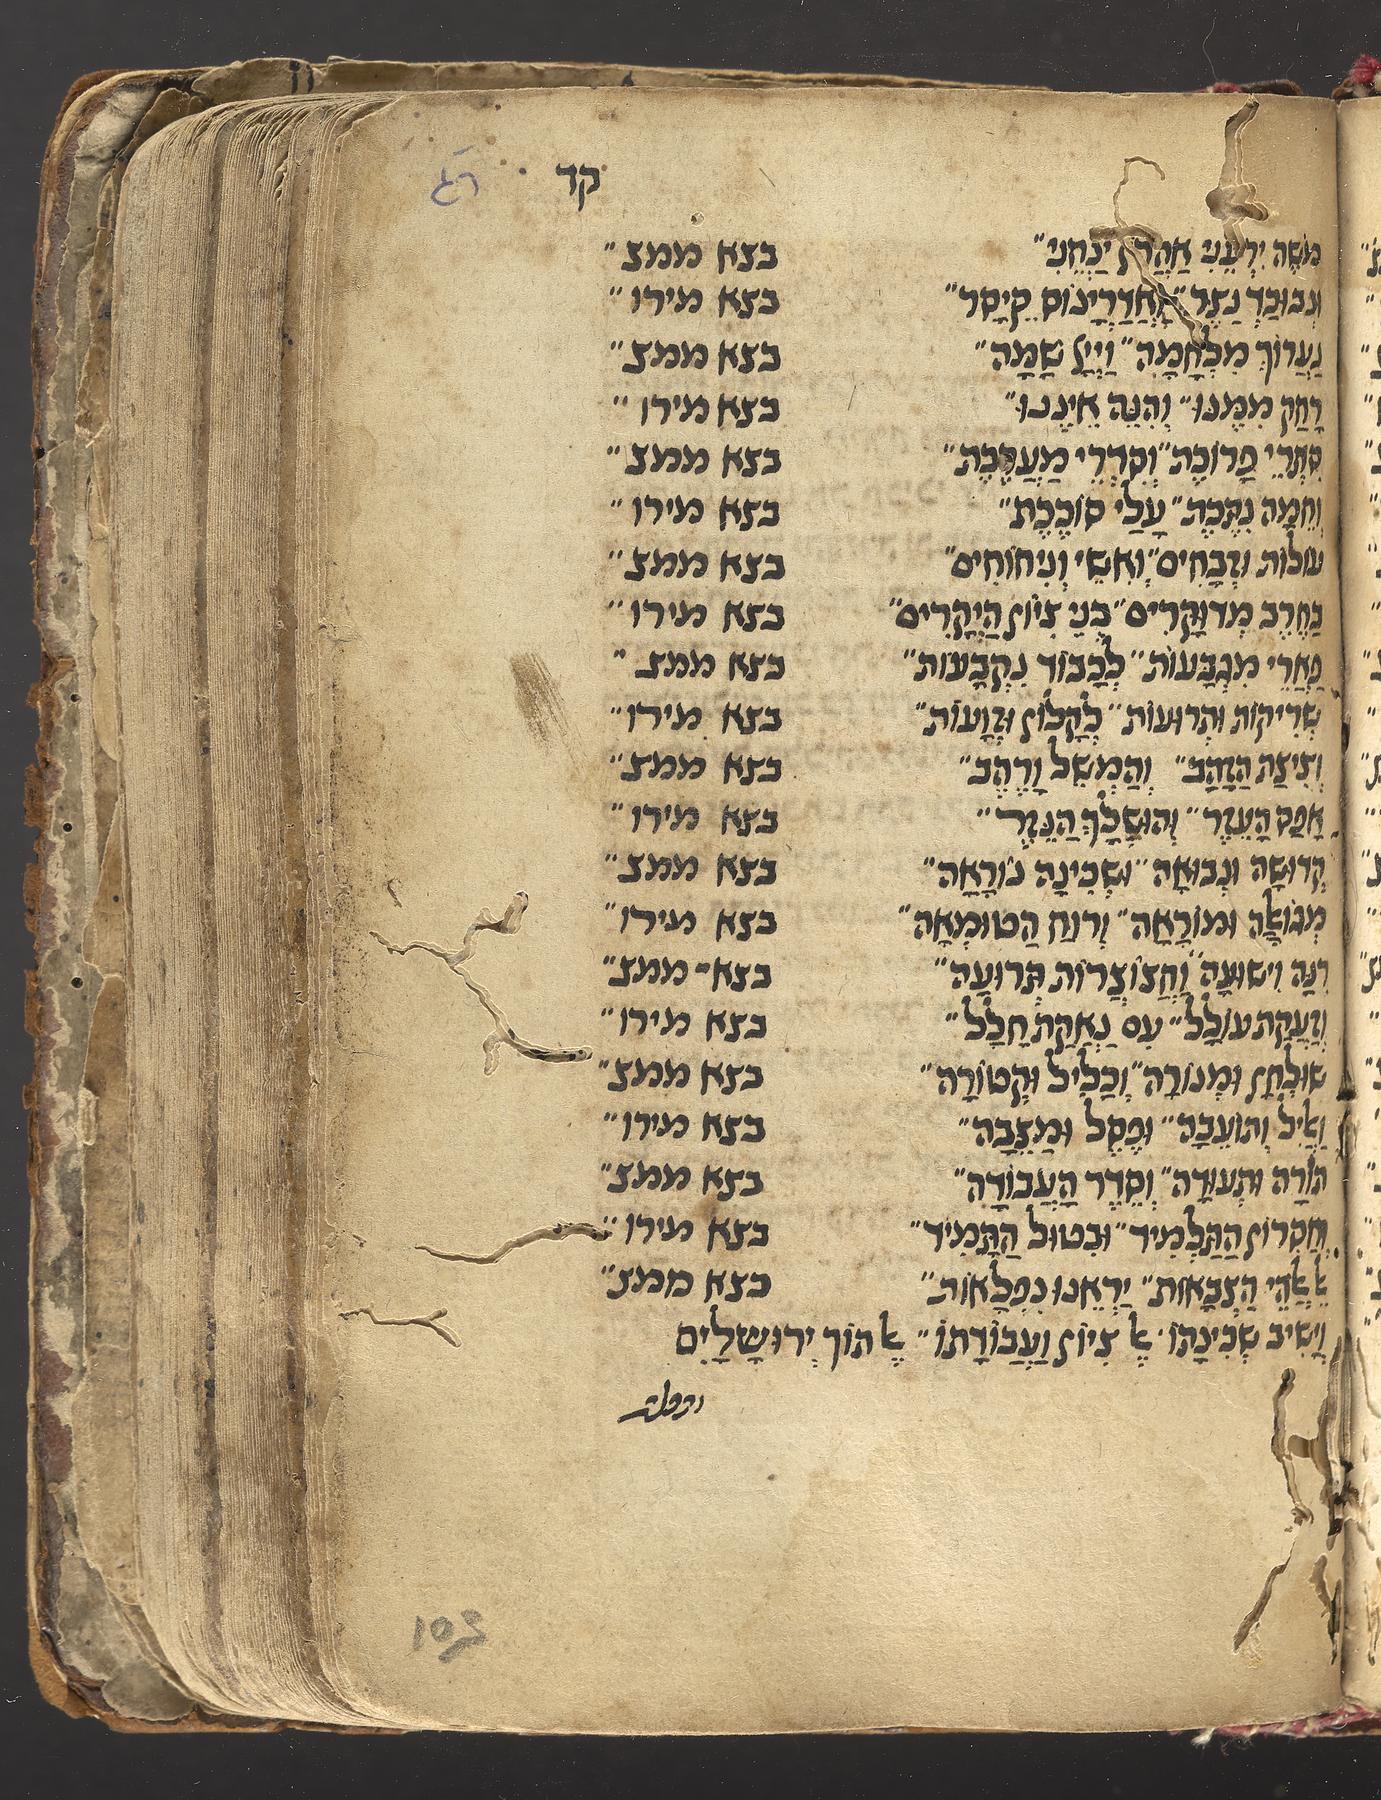 קד רג
מֹשֶׁה יִרְעֵנִי אַהֲרֹן יַנְחֵנִי״ בצא ממצ״
וּנְבוּכַדְ נֶצֶר״ וְאַדְרִיָנוֹס קֵיסָר״ בצא מירו״
נַעֲרוֹךְ מִלְחָמָה״ וַיְיָ שָׁמָּה״ בצא ממצ״
רָחַק מִמֶּנּוּ״ וְהִנֵּה אֵינֶנּוּ״ בצא מירו״
סִתְרֵי פָרוֹכֶת״ וְסִדְרֵי מַעֲרֶכֶת״ בצא ממצ״
וְחֵמָה נִתֶּכֶת״ עָלַי סוֹכֶכֶת״ בצא מירו״
עוֹלוֹת וּזְבָחִים״ וְאִשֵּׁי וְנִיחוֹחִים״ בצא ממצ״
בַּחֶרֶב מְדוּקָּרִים״ בְּנֵי צִיּוֹן הַיְקָרִים״ בצא מירו״
פַּאֲרֵי מִגְבָּעוֹת״ לְכָבוֹד נִקְבָּעוֹת״ בצא ממצ״
שְׁרִיקוֹת וּתְרוּעוֹת״ לְקָלוֹן וּזְוָעוֹת״ בצא מירו״
וְצִיצַת הַזָּהָב״ וְהַמְשֵׁל וָרֶהֶב״ בצא ממצ״
אָפַס הָעֵזֶר״ וְהוּשְׁלַךְ הַנֵּזֶר״ בצא מירו״
קְדוּשָּׁה וּנְבוּאָה״ וּשְׁכִינָה נוֹרָאָה״ בצא ממצ״
מְגוֹאָלָה וּמוֹרָאָה״ וְרוּחַ הַטּוּמְאָה״ בצא מירו״
רִנָּה וִישׁוּעָה״ וַחֲצוֹצְרוֹת תְּרוּעָה״ בצא ממצ״
וְזַעֲקַת עוֹלָל״ עִם נַאֲקַת חָלָל״ בצא מירו״
שׁוּלְחָן וּמְנוֹרָה״ וְכָלִיל וּקְטוֹרָה״ בצא ממצ״
וֶאֱלִיל וְתוֹעֵבָה״ וּפֶסֶל וּמַצֵּבָה״ בצא מירו״
תּוֹרָה וּתְעוּדָה״ וְסֵדֶר הָעֲבוֹדָה״ בצא ממצ״
וְחֶסְרוֹן הַתַּלְמִיד״ וּבִטּוּל הַתָּמִיד״ בצא מירו״
אֱלֹהֵי הַצְּבָאוֹת״ יַרְאֵנוּ נִפְלָאוֹת״ בצא ממצ״
וְיָשִׁיב שְׁכִינָתוֹ אֶל צִיּוֹן וַעֲבוֹדָתוֹ״ אֶל תּוֹךְ יְרוּשָׁלַיִם
103